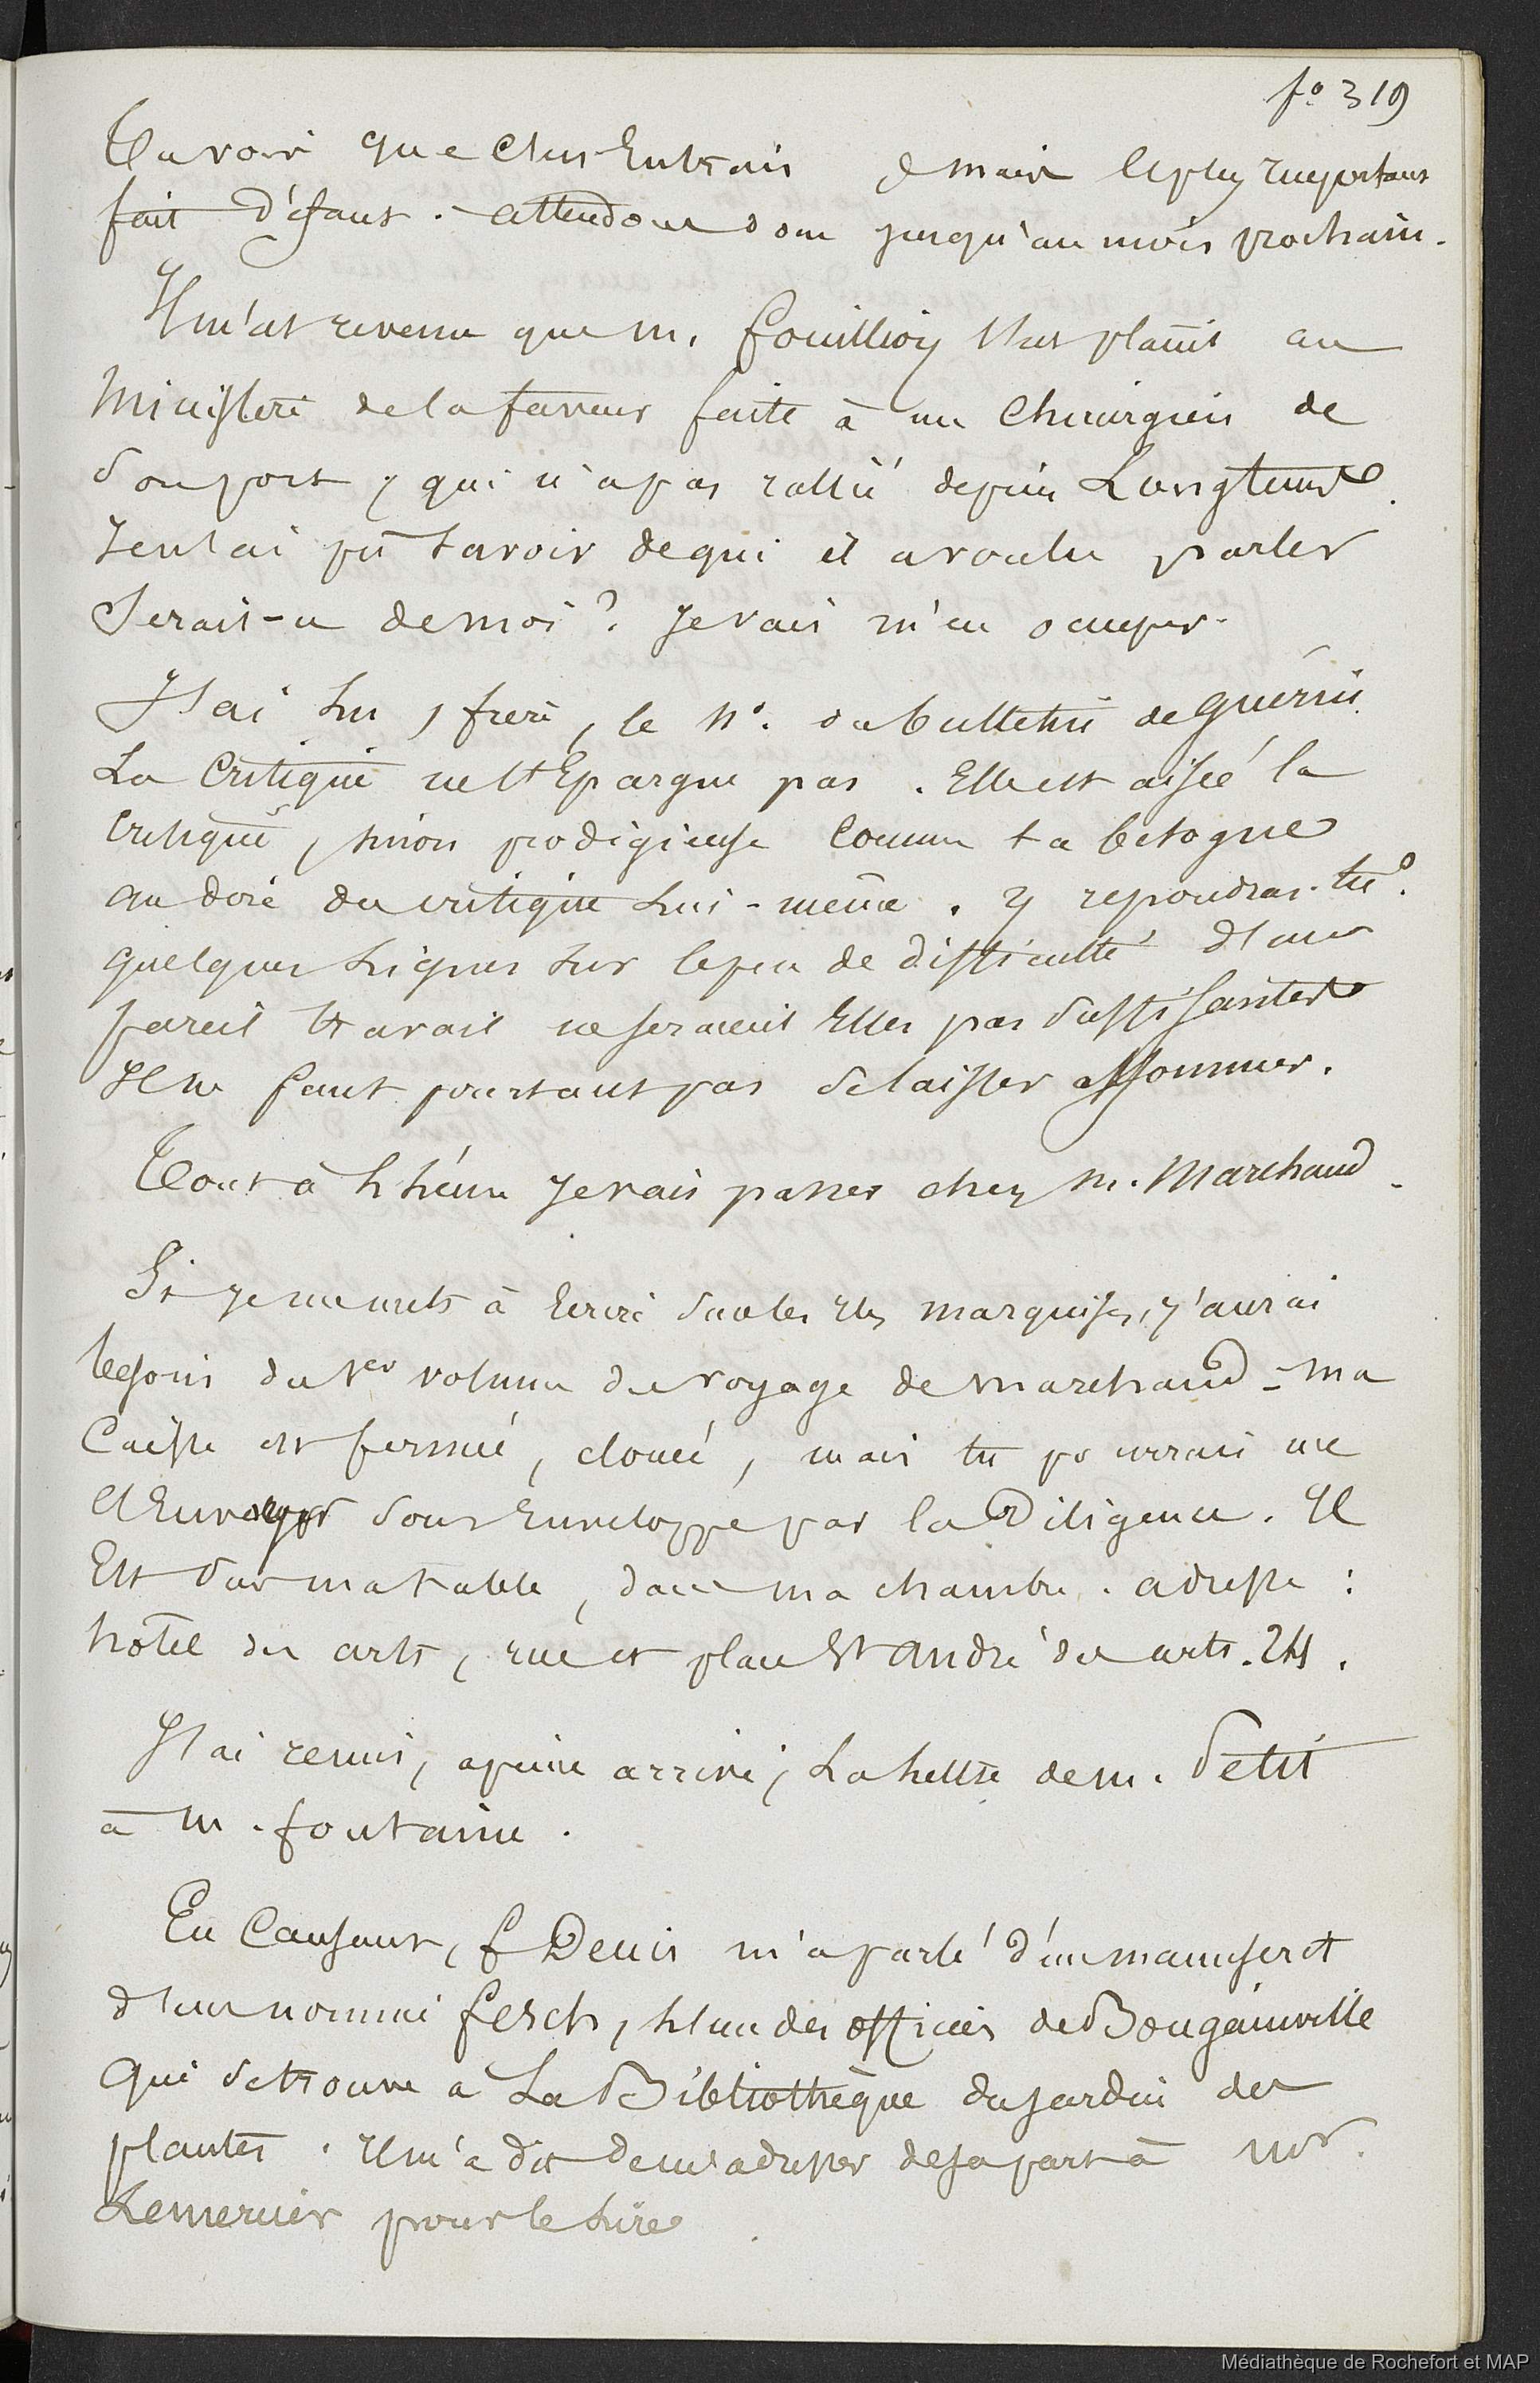 f° 319
Tu vois que c'est entrain, mais le plus important
fait défaut. attendons donc jusqu'au mois prochain.
Il m'est revenu que M. Fouillioy s'est plaint au
Ministère de la faveur faite à un Chirurgien de
son port, qui n'a pas rallié depuis Longtemps.
J'en'ai pu savoir de qui il a voulu parler
Serait-ce de moi? Je vais m'en occuper.
J'ai lu, frère, le N°. du bulletin de Guérin.
La Critique ne t'Epargne pas. Elle est aisée la
Critique, sinon prodigieuse comme ta besogne
au dire du critique lui-même. y repondras-tu?
quelques lignes sur le peu de difficulté d'un
pareil travail ne seraient Elles pas suffisantes
Il ne faut pourtant pas se laisser assommer.
Tout à l'heure Je vais passer chez M. Marchand.
Si je me mets à Ecrire sur les Iles marquises, j'aurai
besoin du 1er volume du voyage de Marchand - Ma
Caisse est fermée, clouée, mais tu pourrais me
l'Envoyer sous Enveloppe par la Diligence. Il
Est sur ma table, dans ma chambre. adresse :
hôtel des arts, rue et place St André des arts. 24.
J'ai remis, a peine arrivé, La lettre de M. Petit
à M. fontaine.
En Causant, f Denis m'a parlé d'un manuscrit
d'un nommé fesch, l'un des officiers de Bougainville
Qui se trouve à La Bibliothèque du Jardin des
plantes. Il m'a dit de m'adresser de sa part à Mr.
Lemercier pour le lire
Médiathèque de Rochefort et MAP